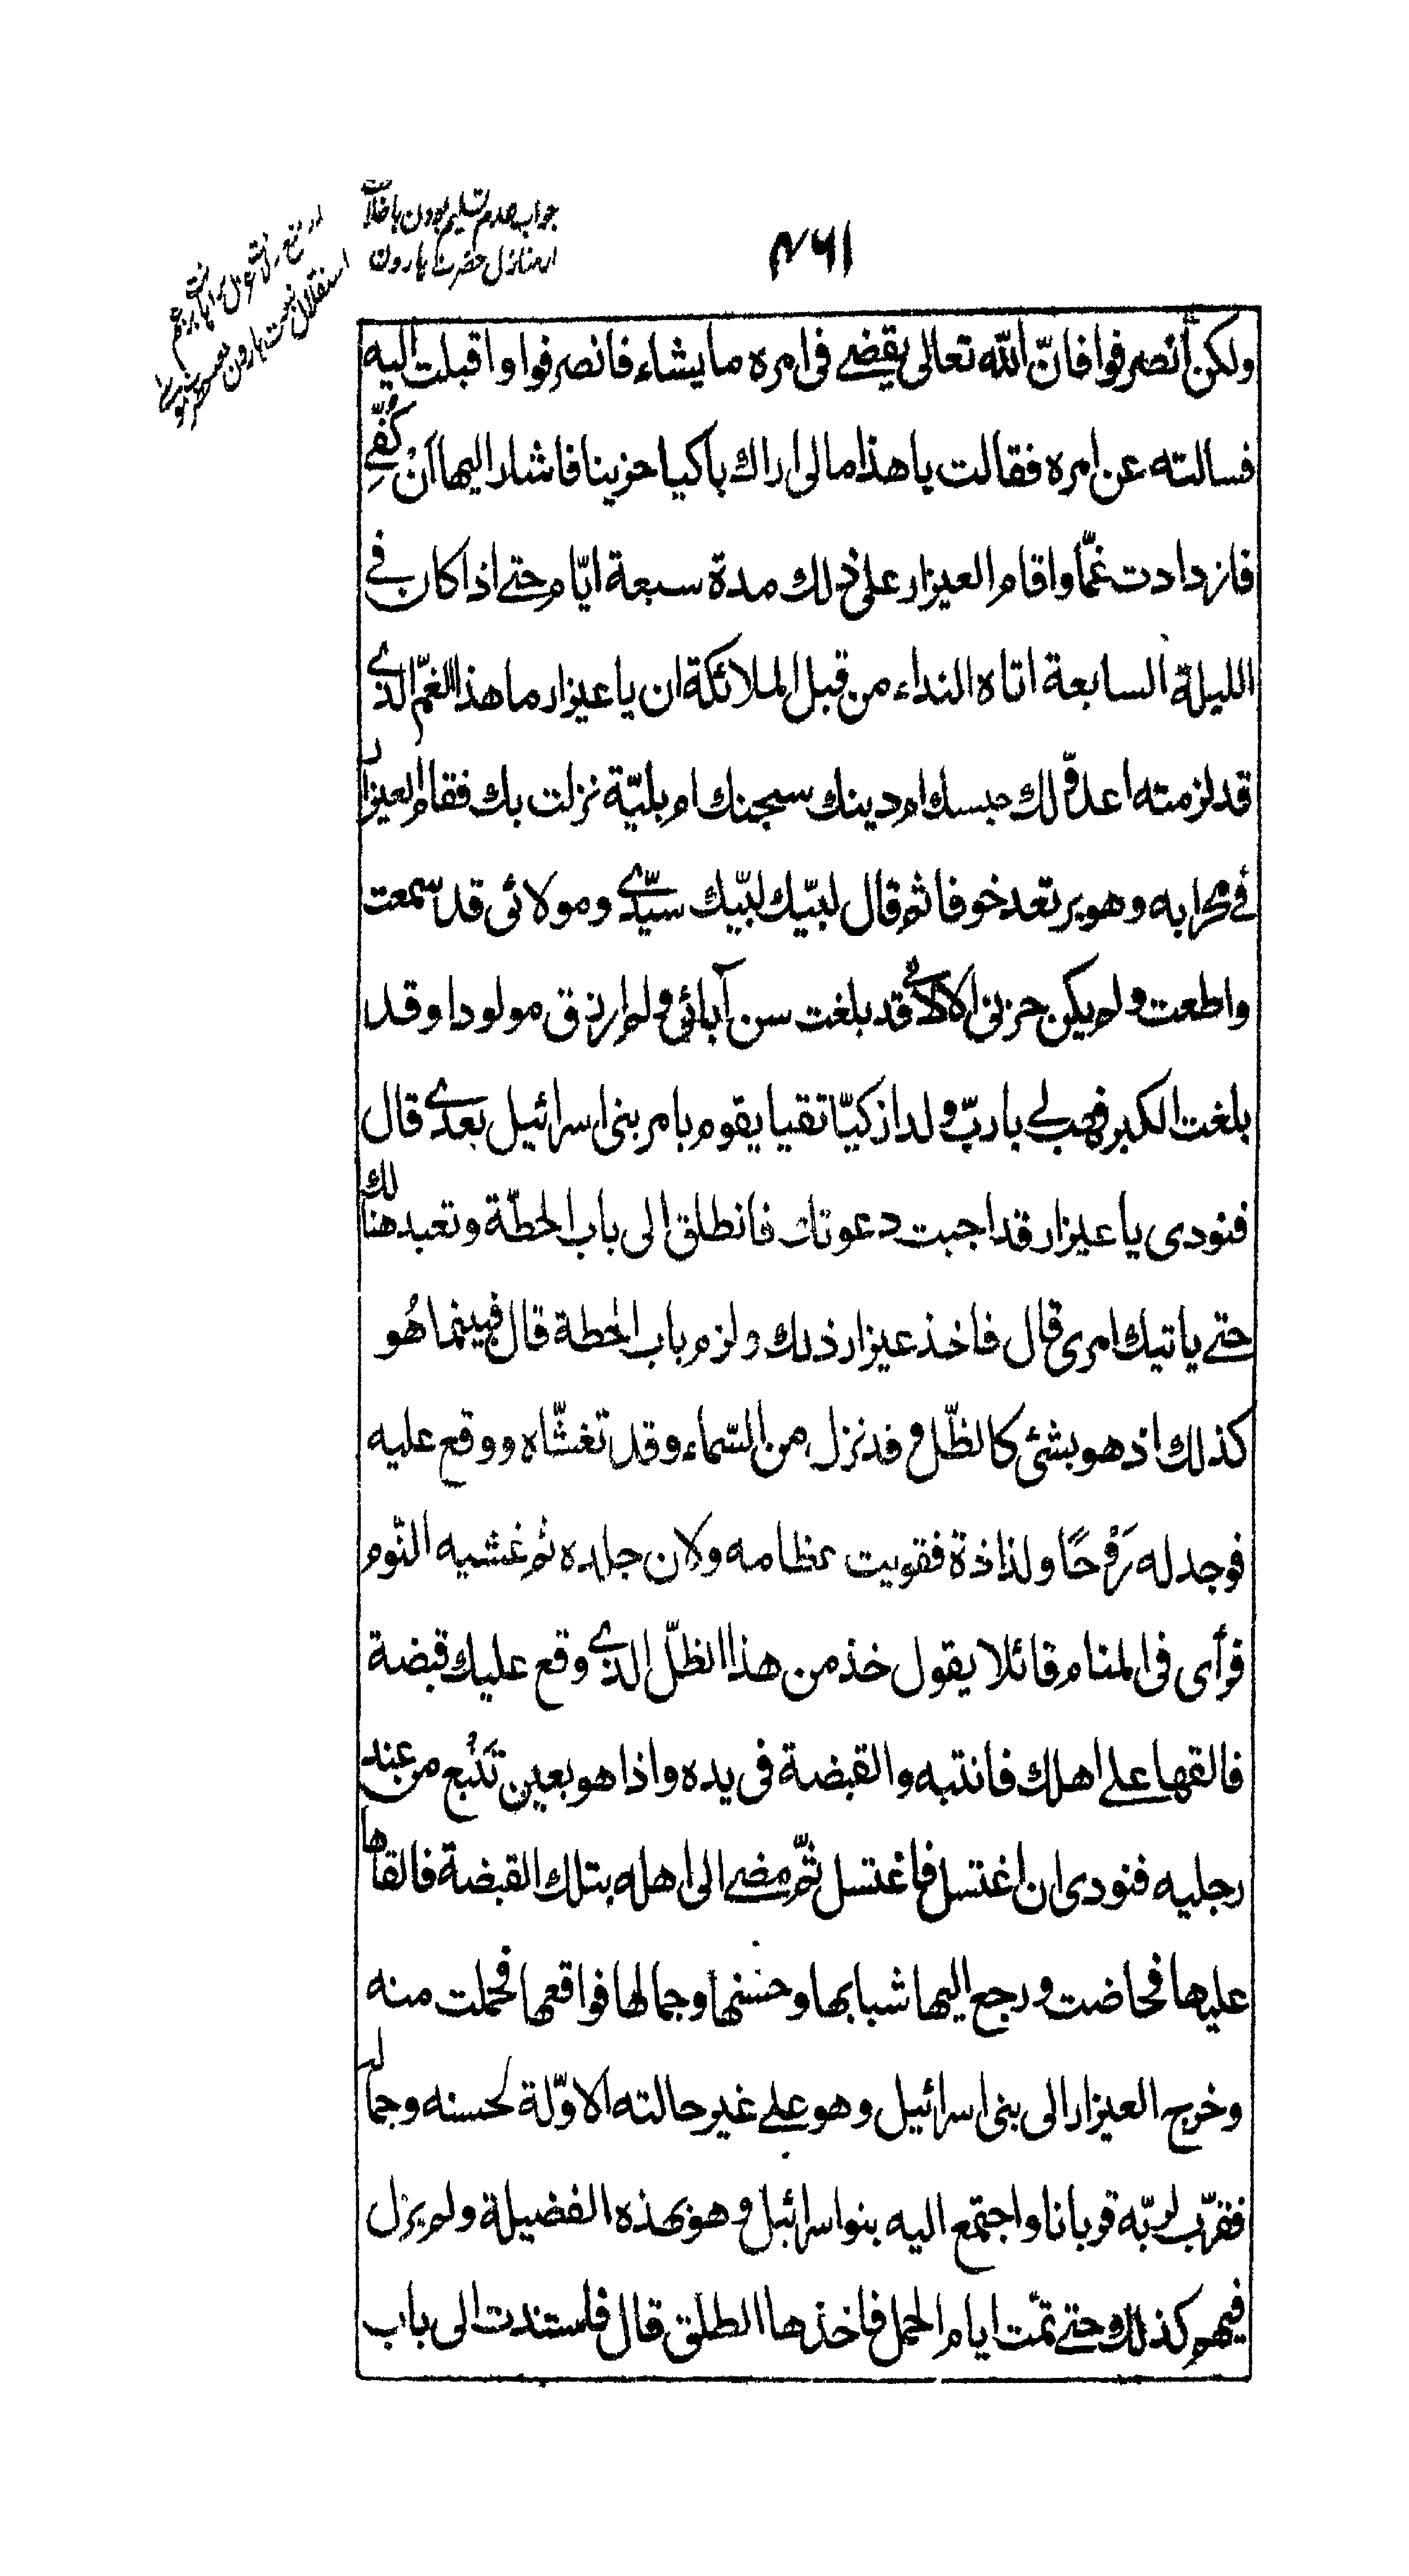 ۴۶۱
جواب عدم تسلیم بودن با خلافت
از منازل حضرت هارون
استقلال نیست هارون
ولكن أنصرفوا فانّ الله تعالى يقضے فى امره ما يشاء فانصرفوا واقبلت اليه
فسالته عن امره فقالت ياهذا مالى اراك باكيا حزينا فاشار اليها اَنْ كُفّے
فازدادت غمّا واقام العيزار على ذلك مدة سبعة ايّام حتے اذا كان فے
الليلة السابعة اتاه النداء من قبل الملائكة ان يا عيزار ما هذا الغمّ الذے
قد لزمته اعدوّ لك حبسك ام دينك سجنك ام بليّة نزلت بك فقام العيزار
فے محرابه وهو يرتعد خوفا ثم قال لبّيك لبّيك سيّدے ومولائى قد سمعت
واطعت ولم يكن حزنى الا لانے قد بلغت سن آبائى ولم ارزق مولودا وقد
بلغت الكبر فهب لے يا ربّ ولدا زكيّا تقيا يقوم بامر بنى اسرائيل بعدے قال
فنودى يا عيزار قد اجبت دعوتك فانطلق الى باب الحطّة وتعبد هنالك
حتے ياتيك امرى قال فاخذ عيزار ذلك ولزم باب الحطة قال فبينما هُو
كذلك اذ هو بشئ كالظّل وقد نزل من السّماء وقد تغشّاه ووقع عليه
فوجد له رَوْحًا ولذاذة فقويت عظامه ولان جلده ثم غشيه النّوم
فرأى فى المنام قائلا يقول خذ من هذا الظلّ الذے وقع عليك قبضة
فالقها علے اهلك فانتبه والقبضة فى يده واذا هو بعين تَنْبُع من عند
رجليه فنودى ان اغتسل فاغتسل ثمّ مضے الى اهله بتلك القبضة فالقاها
عليها فحاضت ورجع اليها شبابها وحسنها وجمالها فواقعها فحملت منه
وخرج العيزار الى بنى اسرائيل وهو علے غير حالته الاوّلة لحسنه وجماله
فقرّب لربّه قربانا واجتمع اليه بنو اسرائيل وهو بهذه الفضيلة ولم يزل
فيهم كذلك حتے تمّت ايام الحمل فاخذها الطلق قال فاستندت الى باب